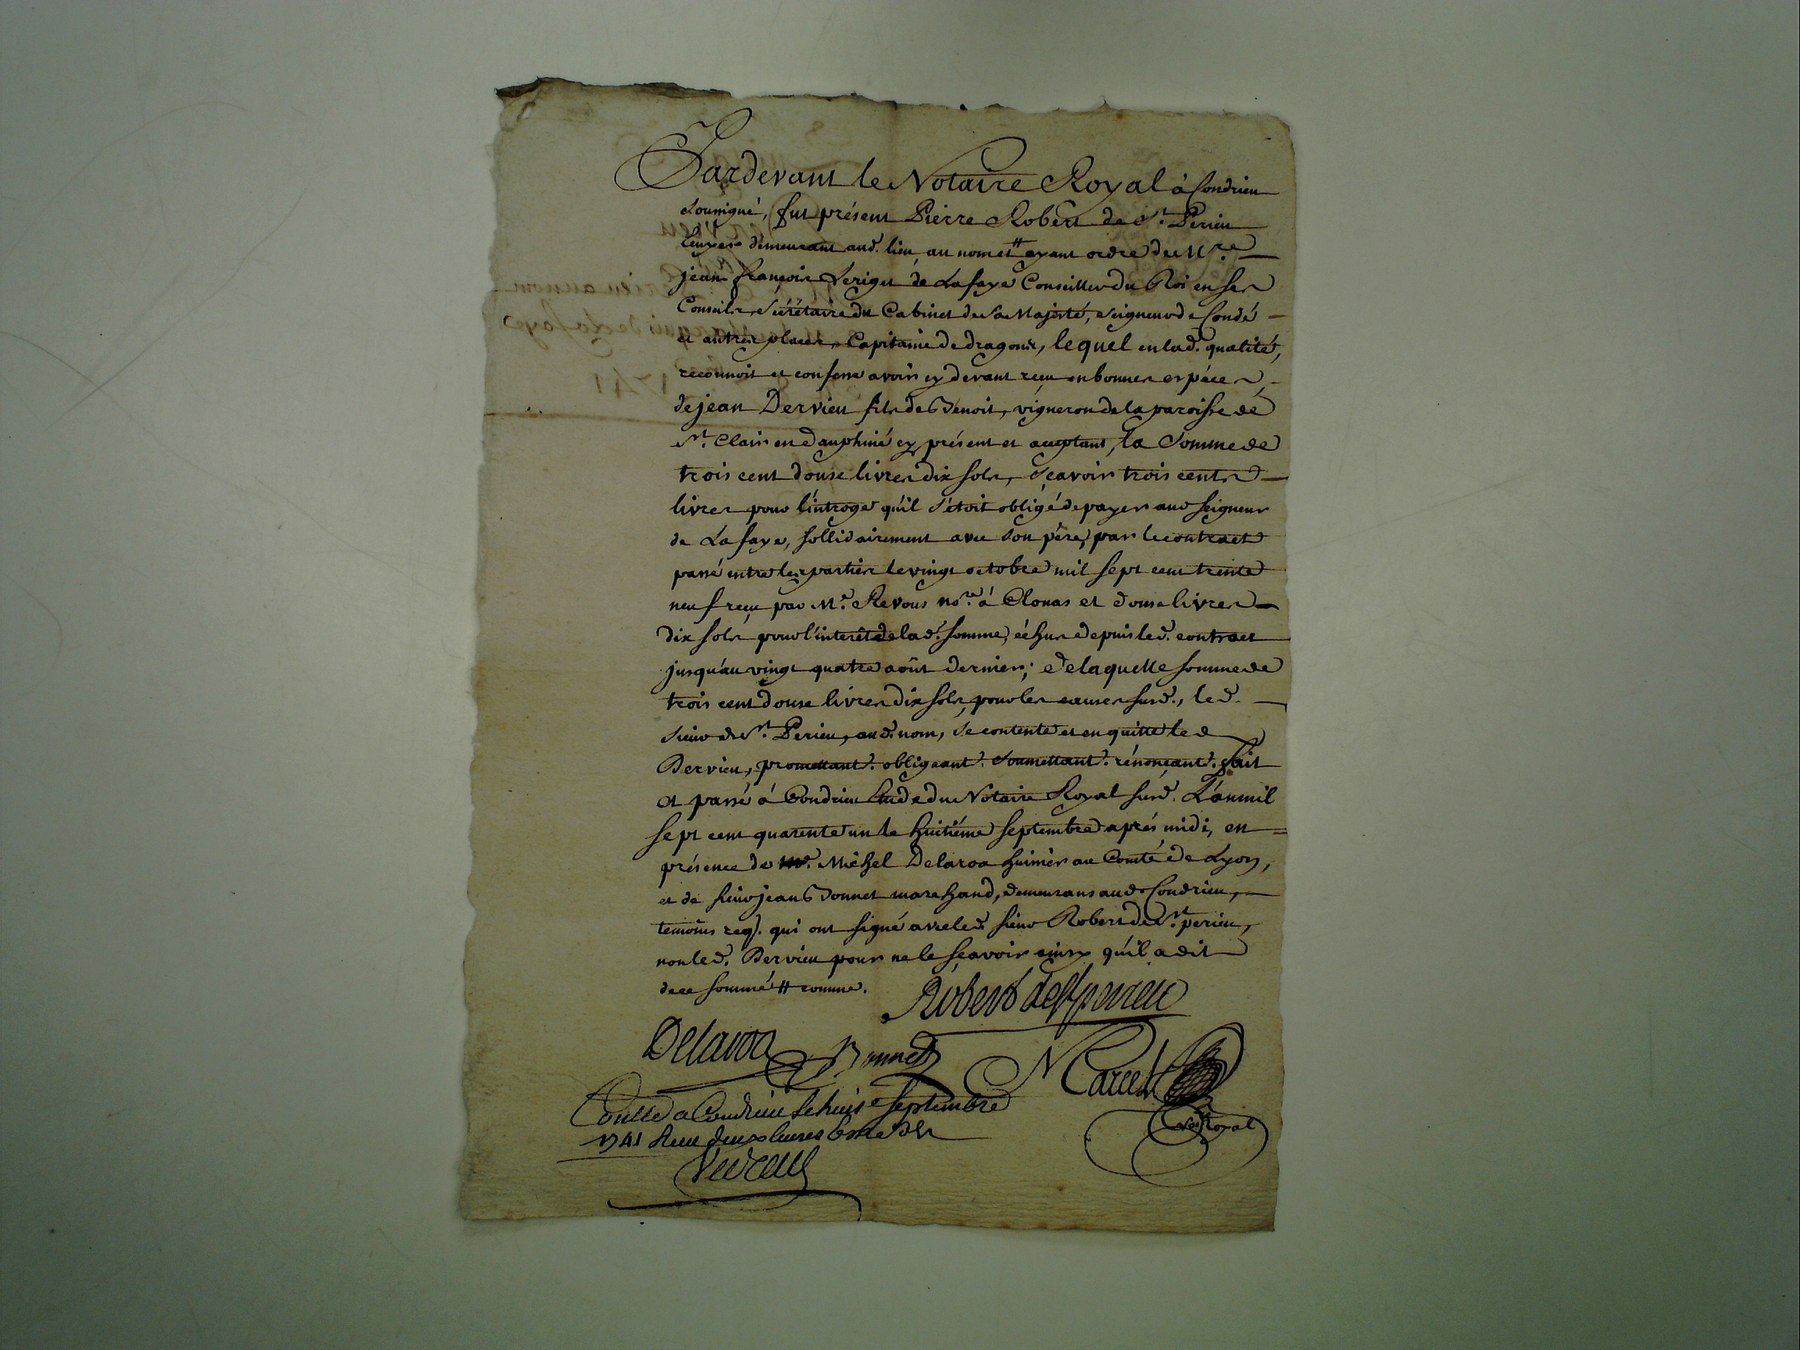 Pardevant le Notaire Royal à Condrieu
soussigné, fut présent Pierre Robert de St. Perieu
demeurant aud. lieu, au nom et ayant ordre de Mre
jean françois Leriget de Lafaye Conseiller du Roi en ses
Conseils, Sécrétaire du Cabinet de Sa Majesté, seigneur de Condé
et autres places, Capitaine de dragons, lequel en lad. qualité,
reconnoit et confesse avoir cy devant reçu en bonnes espéces,
de jean Dervieu fils de Benoit, vigneron de la paroisse de
St. Clair en dauphiné cy présent et acceptant, la Somme de
trois cent douse livres dix sols, sçavoir trois cents
livres pour l'introge qu'il s'étoit obligé de payer aud seigneur
de Lafaye, sollidairement avec son père, par le contract
passé entre les parties le vingt octobre mil sept cent trente
neuf reçu par Me. Revous nore. à Clonas et douse livres
dix sols pour l'interêt de lad. somme, échus depuis led. contract
jusqu'au vingt quatre août dernier; de laquelle somme de
trois cent douse livres dix sols, pour les causes susd., led.
sieur de St. Perieu, aud. nom, se contente et en quitte led
Dervieu, promettant. obligeant. soumettant. rénonçant. fait
et passé à Condrieu Etude du Notaire Royal susd. L'an mil
sept cent quarente un le huitiéme septembre après midi, en
présence de Me. Michel Delaroa huissier au Comté de Lyon,
et de sieur jean Bonnet marchand, demeurans aud Condrieu,
temoins req. qui ont signé avec led. sieur Robert de St. perieu,
non led. Dervieu pour ne le sçavoir ainsy qu'il a dit
de ce sommé # comme.
Robert de St perieu
Delaroa Bonnet Marcel
Not Royal
Conllé a Condrieu le huit e Septembre
1741 Reçu deux livres